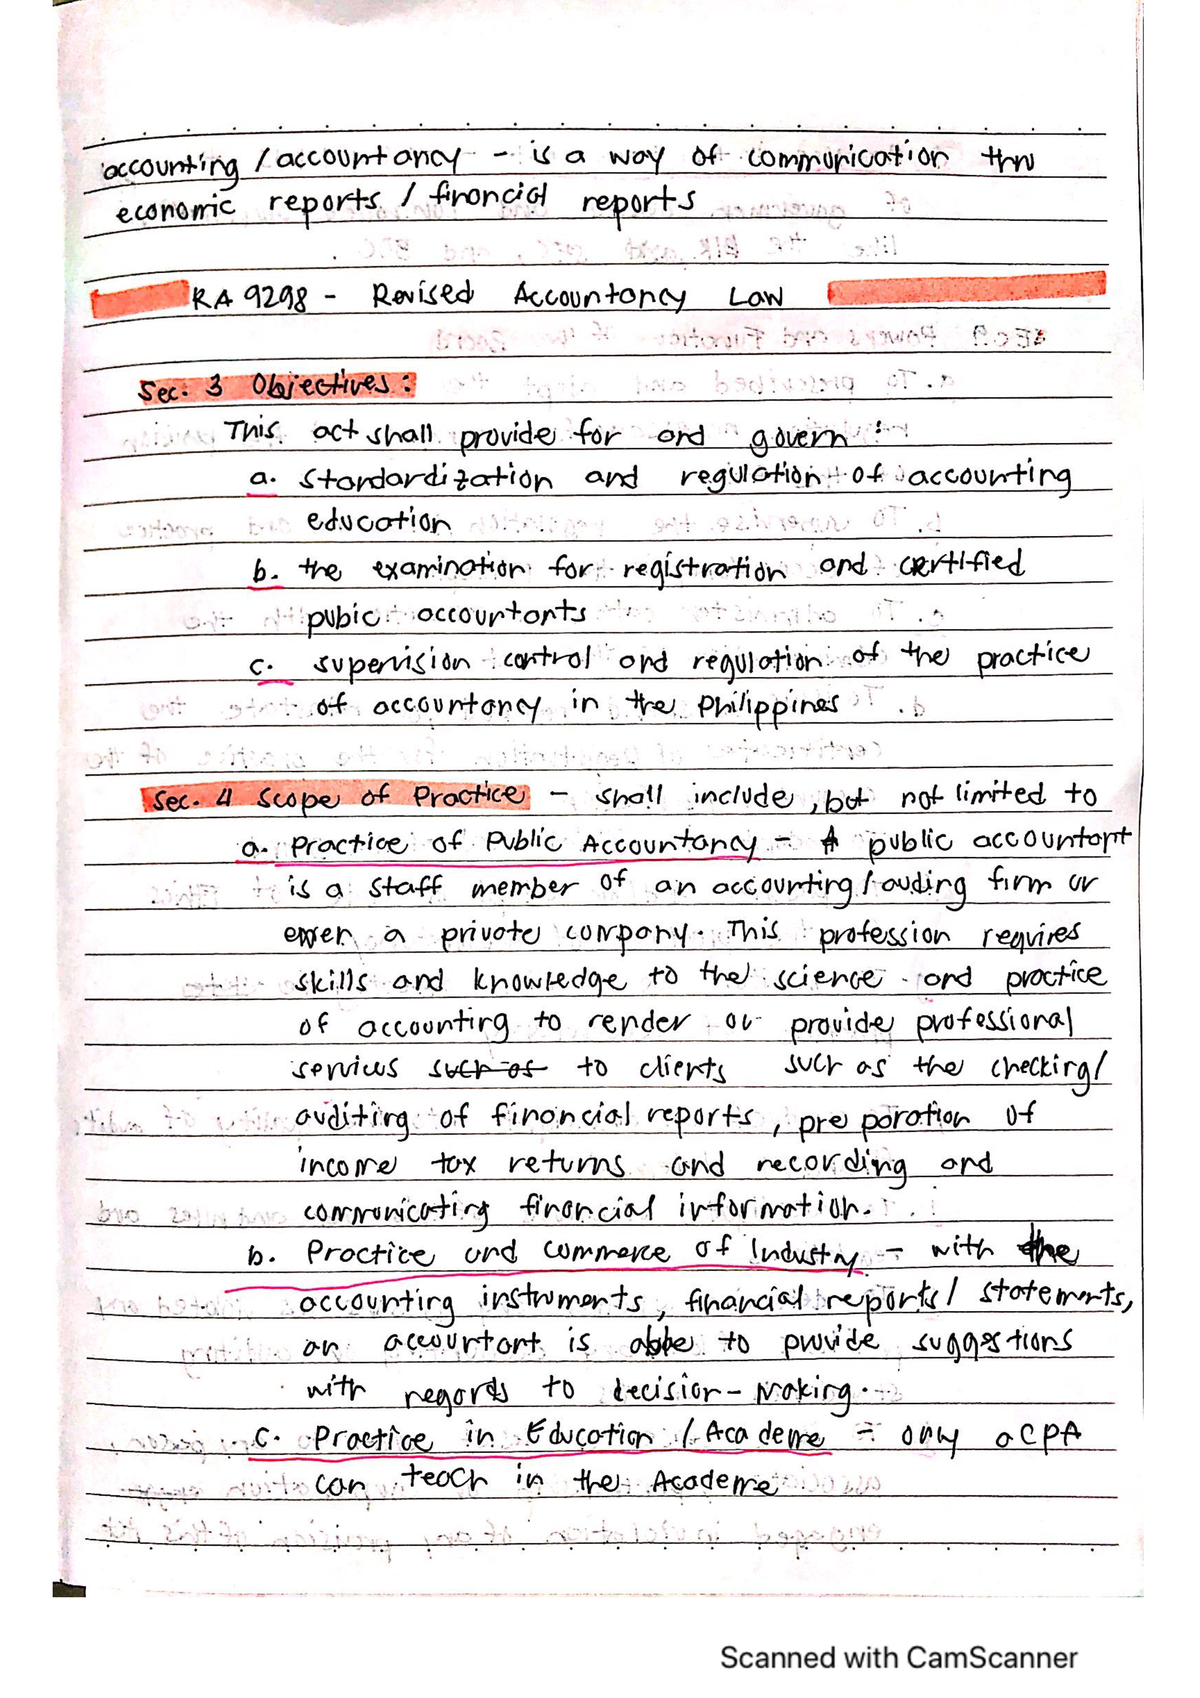 accounting / accountancy - is a way of communication thru
economic reports / financial reports
RA 9298 - Revised Accountancy Law
Sec. 3 Objectives :
This act shall provide for and govern :
a. standardization and regulation of accounting
education
b. the examination for registration and certified
pubic accountants
c. supervision control and regulation of the practice
of accountancy in the Philippines
Sec. 4 Scope of Practice - shall include, but not limited to
a. Practice of Public Accountancy - A public accountant
is a staff member of an accounting / auding firm or
even a private company. This profession requires
skills and knowledge to the science and practice
of accounting to render or provide professional
services such as to clients such as the checking/
auditing of financial reports, preparation of
income tax returns and recording and
communicating financial information.
b. Practice and commerce of Industry - with the
accounting instruments, financial reports/ statements,
an accountant is able to provide suggestions
with regards to decision-making.
c. Practice in Education / Academe - only a CPA
can teach in the Academe
Scanned with CamScanner